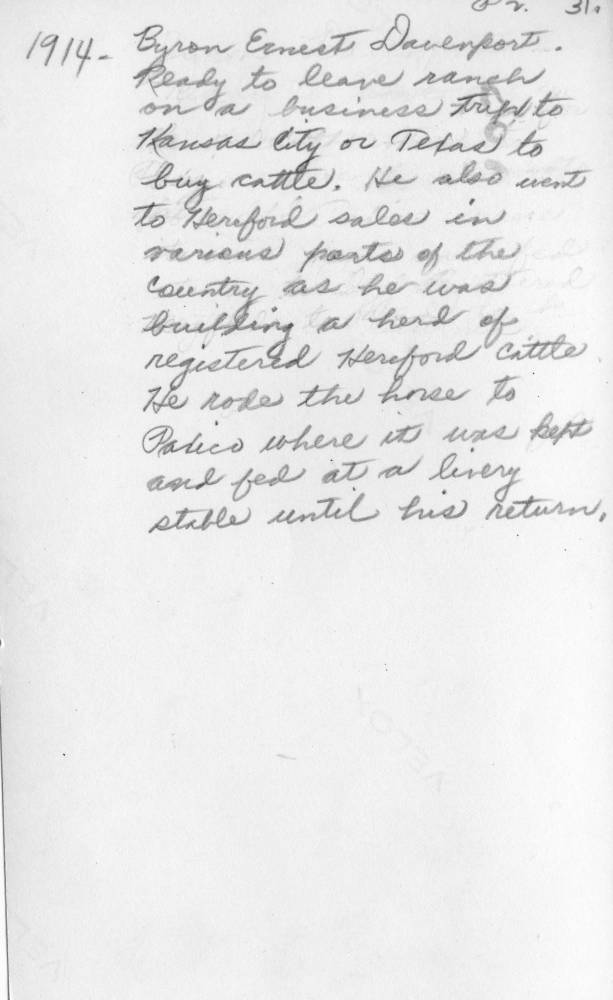 31.
1914- Byron Ernest Davenport.
Ready to leave ranch
on a business trip to
Kansas City or Texas to
buy cattle. He also went
to Hereford sales in
various parts of the
Country as he was
building a herd of
registered Hereford Cattle
He rode the horse to
where it was kept
and fed at a livery
stable until his return.
VELOX